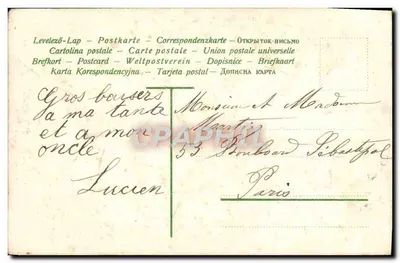 Levelező-Lap - Postkarte - Correspondenzkarte - Открытое письмо
Cartolina postale - Carte postale - Union postale universelle
Brefkort - Postcard - Weltpostverein - Dopisnice - Briefkaart
Karta Korespondencyjna - Tarjeta postal - Дописна карта
Gros baisers
a ma tante
et a mon
oncle
Lucien
Monsieur et Madame
Martin
53 Boulevard Sébastopol
Paris